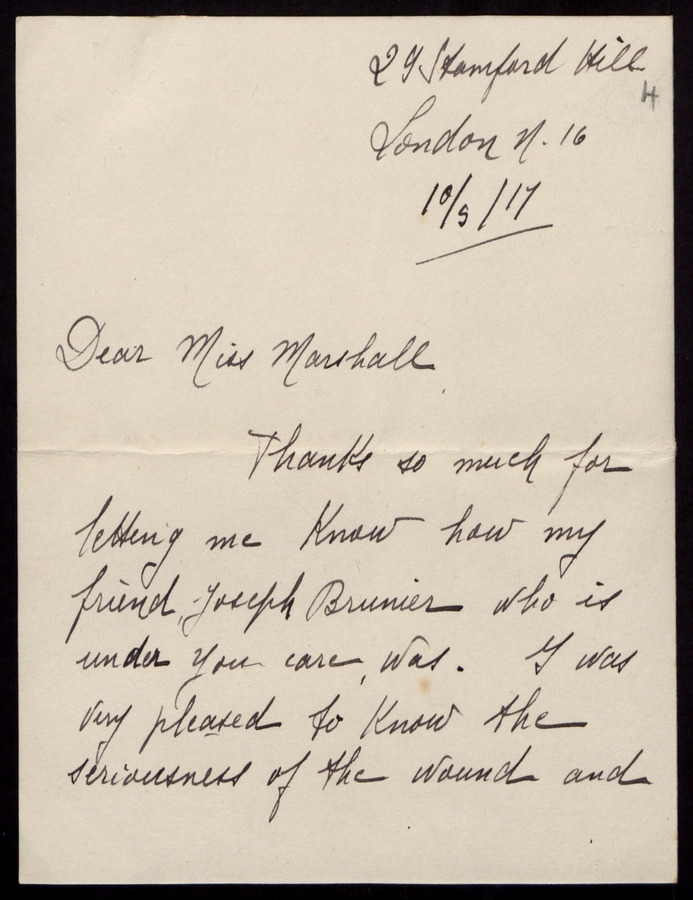 29 Stamford Hill
4
London N. 16
10/5/17
Dear Miss Marshall
Thanks so much for
letting me know how my
friend, Joseph Brunier who is
under you care, was. I was
very pleased to know the
seriousness of the wound and